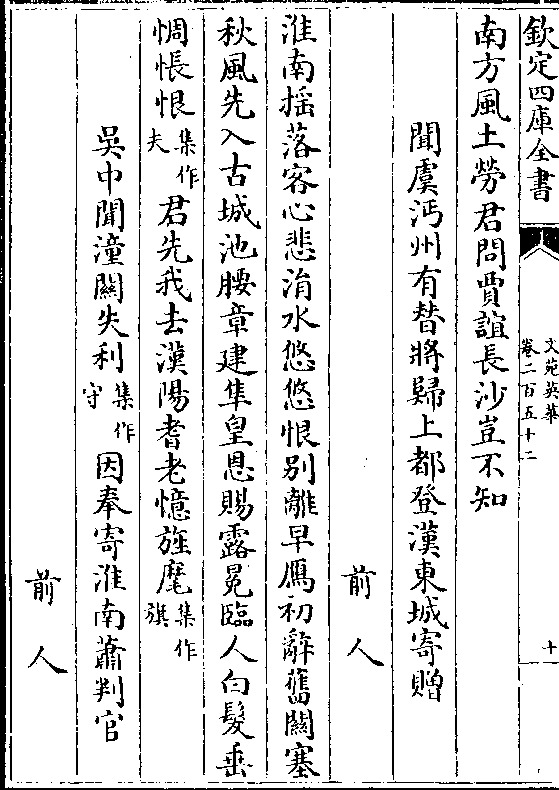 欽定四庫全書
文苑英華
卷二百五十二
十
南方風土勞君問賈誼長沙豈不知
聞虞沔州有替將歸上都登漢東城寄贈
前人
淮南揺落客心悲涓水悠悠恨别離早鴈初辭舊闗塞
秋風先入古城池腰章建隼皇恩賜露冕臨人白髮垂
惆悵恨集作夫君先我去漢陽耆老憶旌麾集作旗
吳中聞潼闗失利集作守因奉寄淮南蕭判官
前人